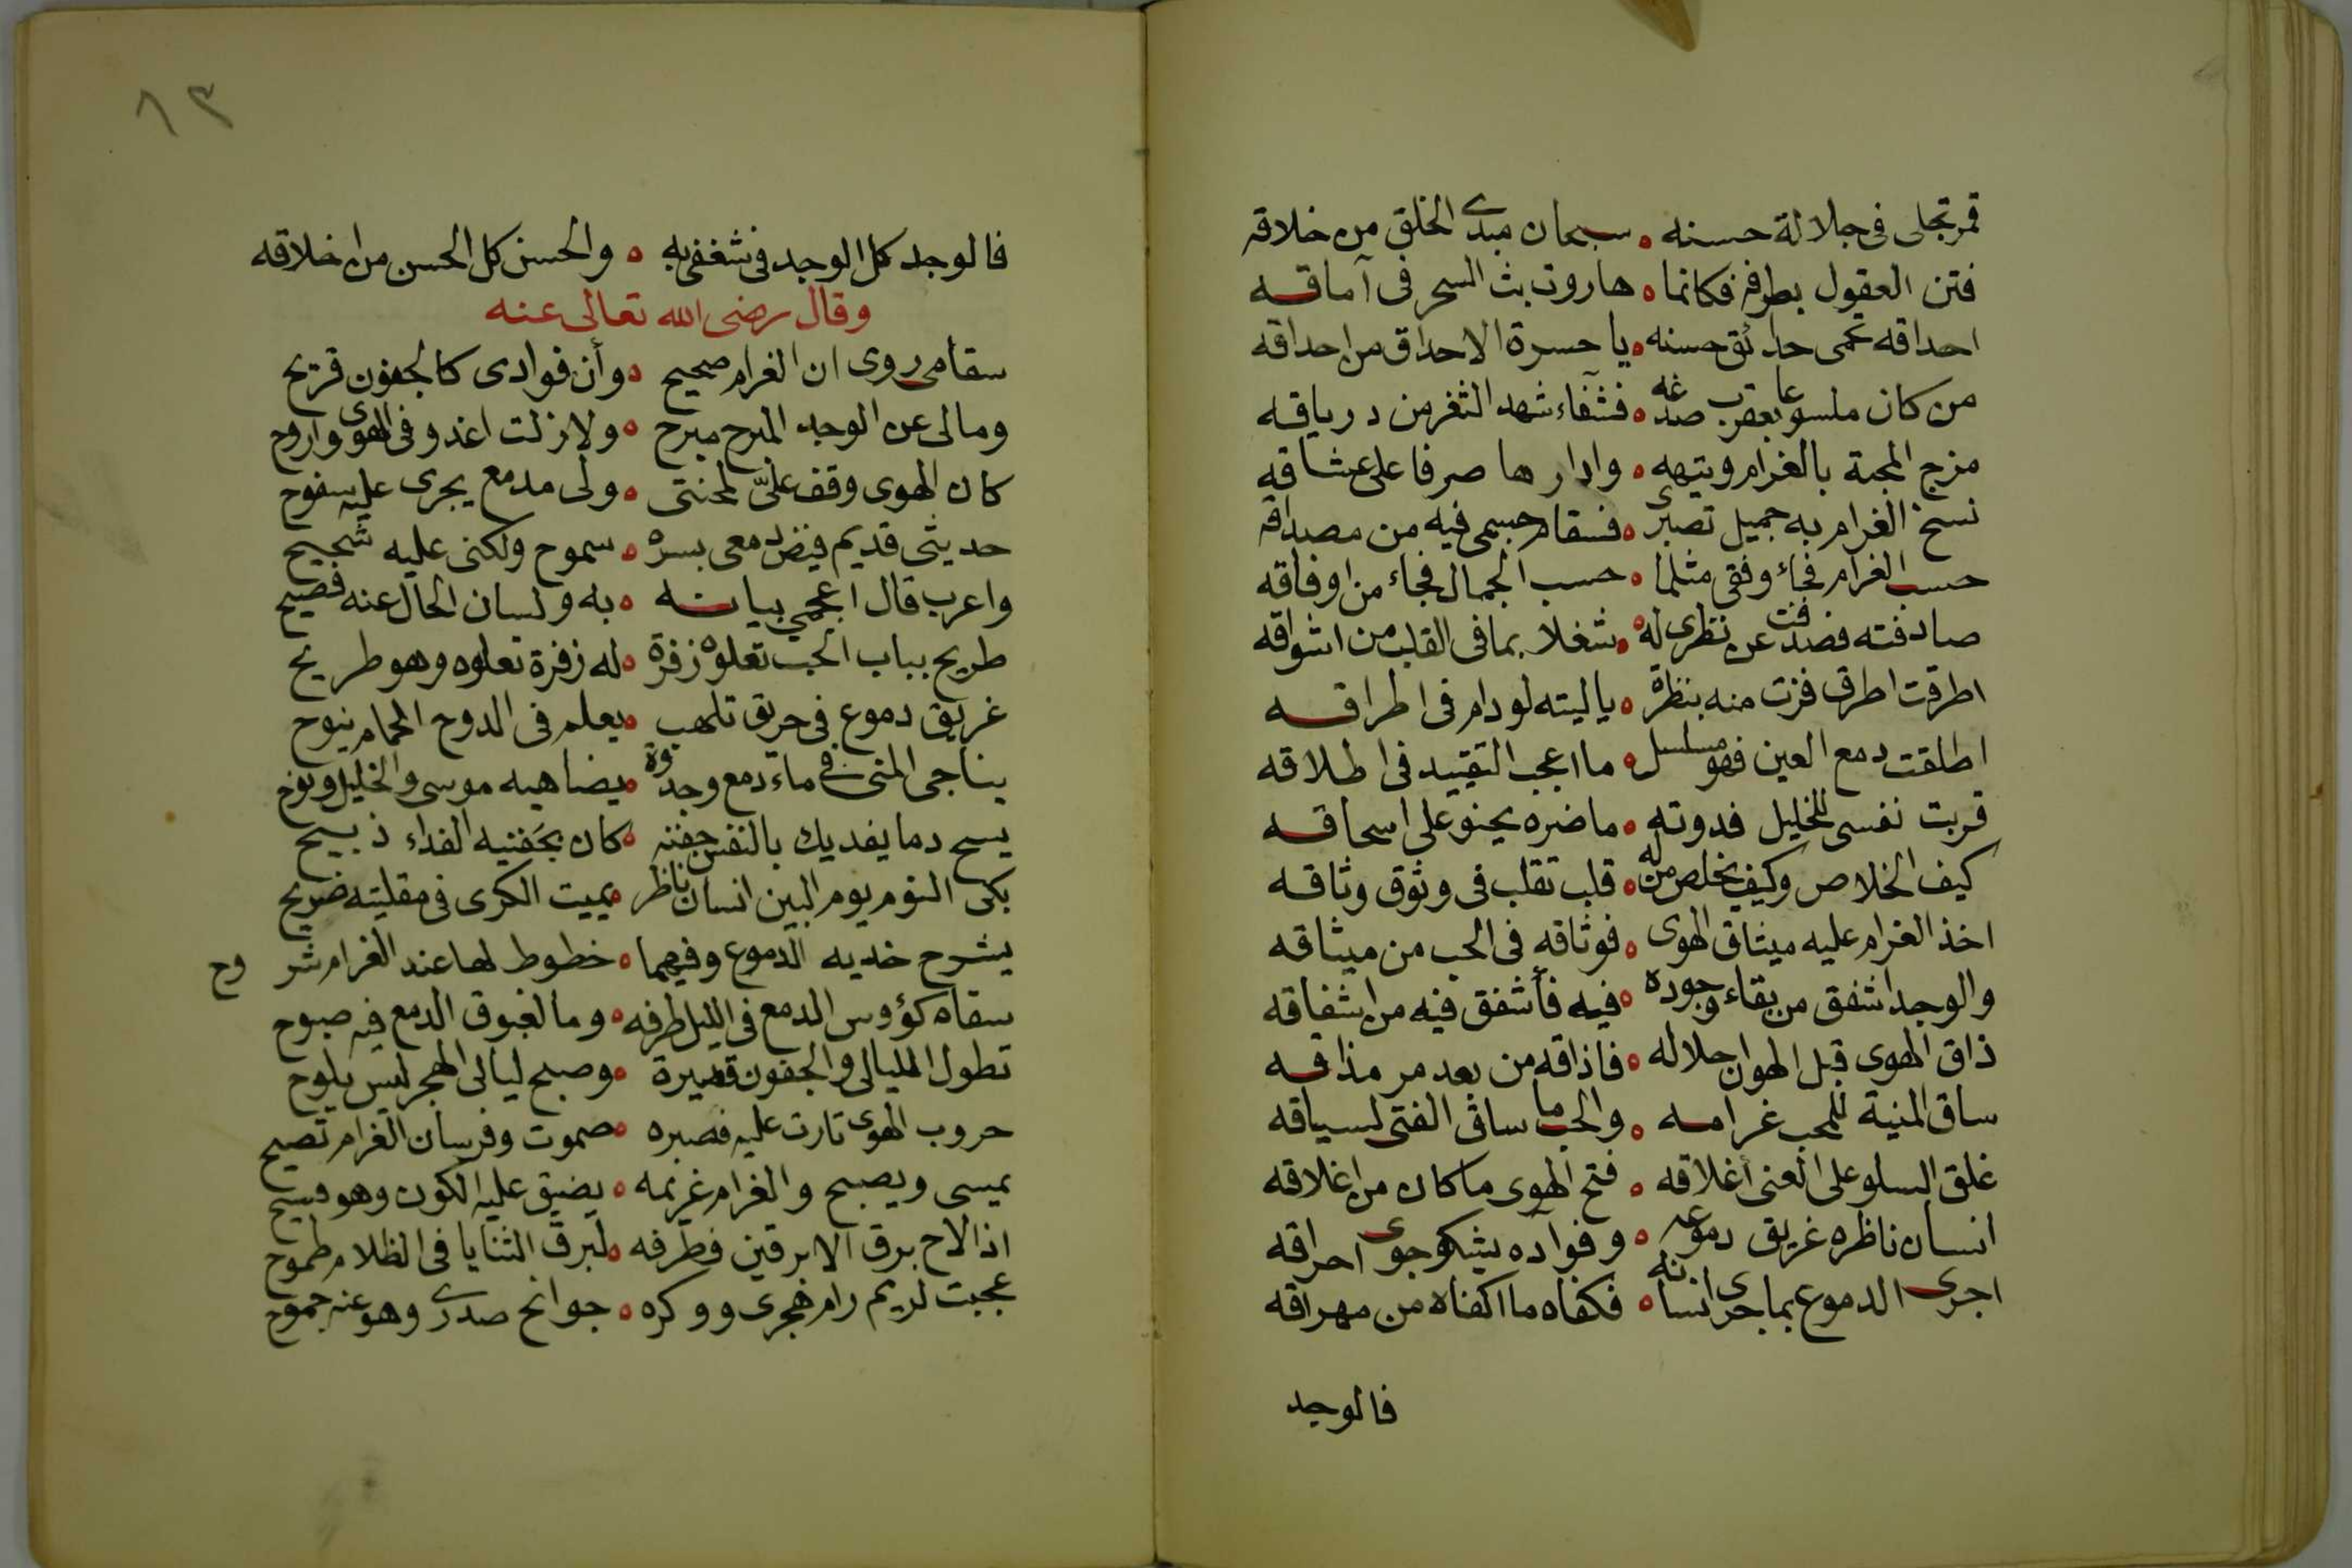 قمر تجلى فى جلالة حسنه ه سبحان مبدى الخلق من خلاقه
فتن العقول بطرفه فكانما ه هاروت بث السحر فى آماقه
احداقه تحمى حدائق حسنه ه يا حسرة الاحداق من احداقه
من كان ملسوعا بعقرب صدغه ه فشفاء شهد الثغر من درياقه
مزج المحبة بالغرام وبتيهه ه وادارها صرفا على عشاقه
نسخ الغرام به جميل تصبرى ه فسقام جسمى فيه من مصداقه
حسب الغرام فجاء وفقى مثلما ه حسب الجمال فجاء من اوفاقه
صادفته فصدفت عن نظرى له ه شغلا بما فى القلب من اشواقه
اطرقت اطرق فزت منه بنظرة ه ياليته لو دام فى اطراقه
اطلقت دمع العين فهو مسلسل ه ما اعجب التقييد فى اطلاقه
قربت نفسى للخليل فدوته ه ما ضره يحنو على اسحاقه
كيف الخلاص وكيف يخلص من له ه قلب تقلب فى وثوق وثاقه
اخذ الغرام عليه ميثاق الهوى ه فوثاقه فى الحب من ميثاقه
والوجد اشفق من بقاء وجوده ه فيه فأشفق فيه من اشفاقه
ذاق الهوى قبل الهوان حلاله ه فاذاقه من بعد مر مذاقه
ساق المنية للمحب غرامه ه والحب ما ساق الفتى لسياقه
غلق السلو على المعنى أغلاقه ه فتح الهوى ما كان من اغلاقه
انسان ناظره غريق دموعه ه وفواده يشكو جوى احراقه
اجرى الدموع بما جرى انسانه ه فكفاه ما اكفاه من مهراقه
فالوجد
٨٣
فالوجد كل الوجد فى شغفى به ه والحسن كل الحسن من اخلاقه
وقال رضى الله تعالى عنه
سقامى روى ان الغرام صحيح ه وأن فوادى كالجفون قريح
ومالى عن الوجد المبرح مبرح ه ولا زلت اغدو فى الهوى واروح
كان الهوى وقف علىّ لمحنتى ه ولى مدمع يجرى عليه سفوح
حديثى قديم فيض دمعى بسره ه سموح ولكنى عليه شحيح
واعرب قال اعجمى بيانه ه به ولسان الحال عنه فصيح
طريح بباب الحب تعلوه زفرة ه له زفرة تعلوه وهو طريح
غريق دموع فى حريق تلهب ه يعلم فى الدوح الحمام ينوح
يناجى المنى فى ماء دمع وجدوة ه يضاهيه موسى والخليل ونوح
يسح دما يفديك بالنفس جفنه ه كان بجفنيه الفداء ذبيح
بكى النوم يوم البين انسان ناظر ه يميت الكرى فى مقلتيه ضريح
يشرح خديه الدموع وفيهما ه خطوط لها عند الغرام شروح
سقاه كؤوس الدمع فى الليل طرفه ه وما لغبوق الدمع فيه صبوح
تطول الليالى والجفون قصيرة ه وصبح ليالى الهجر ليس يلوح
حروب الهوى ثارت عليه فصبره ه صموت وفرسان الغرام تصيح
يمسى ويصبح والغرام غريمه ه يضيق عليه الكون وهو فسيح
اذا لاح برق الابرقين فطرفه ه لبرق الثنايا فى الظلام طموح
عجبت لريم رام هجرى ووكره ه جوانح صدرى وهو عنه جموح